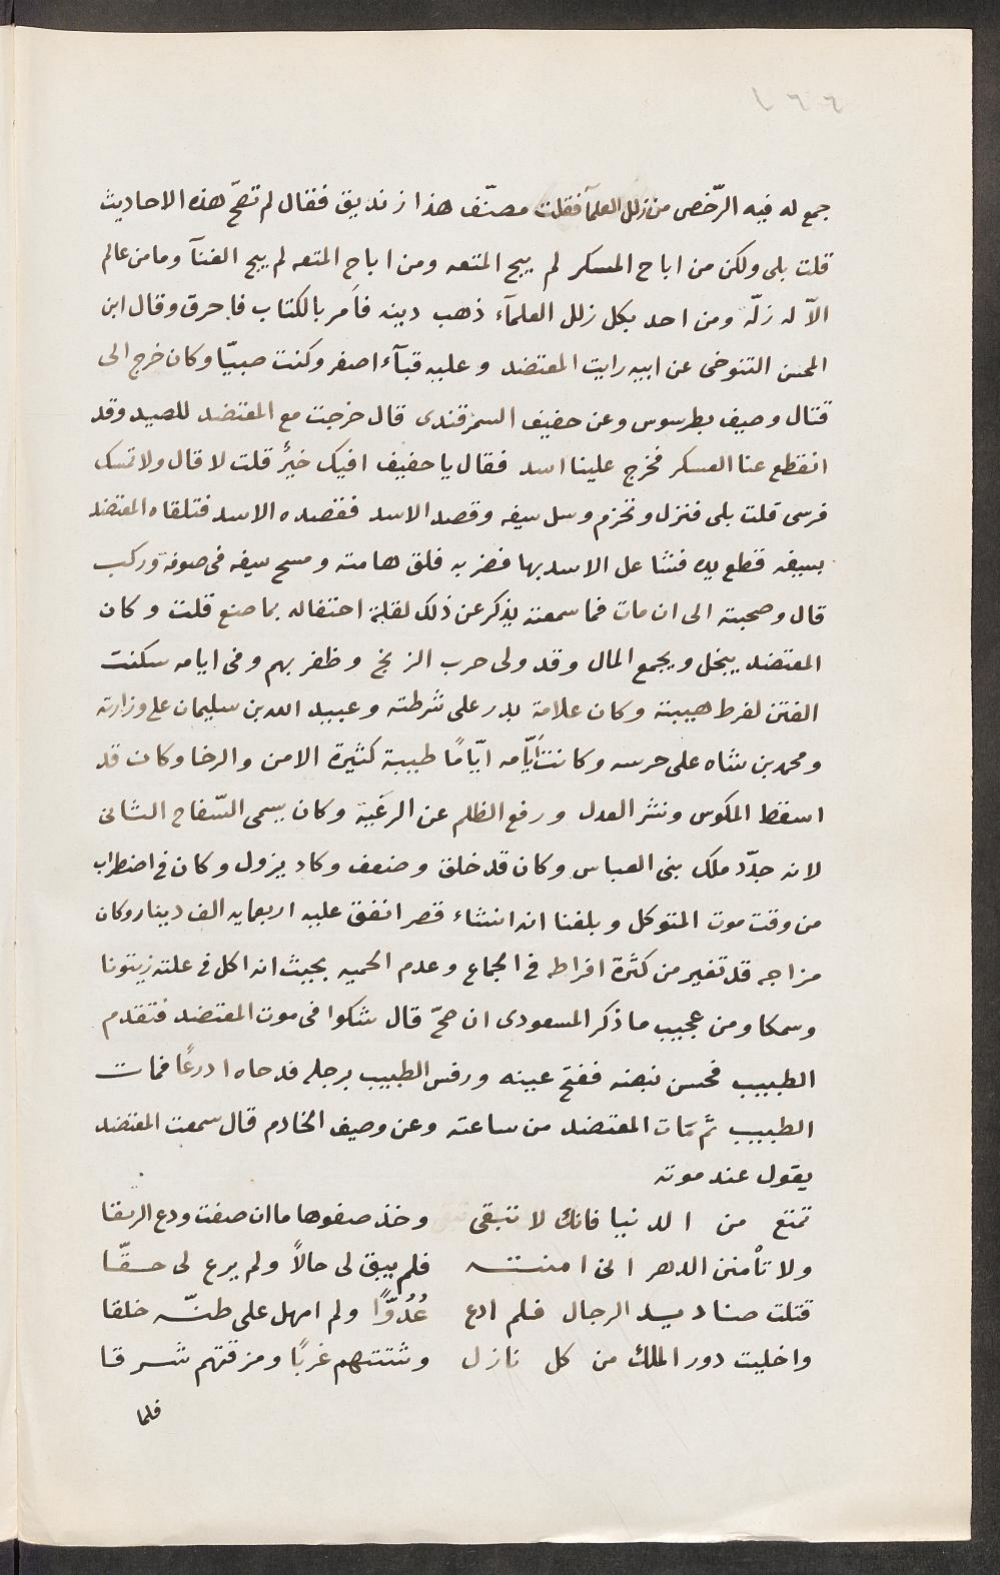 ١٦٦
جمع له فيه الرّخص من زلل العلمآ فقلت مصنّف هذا زنديق فقال لم تصحّ هذه الاحاديث
قلت بلى ولكن من اباح المسكر لم يبح المتعه ومن اباح المتعه لم يبح الغنآ وما من عالم
الاّ له زلّه ومن احد بكل زلل العلمآء ذهب دينه فأمر بالكتاب فاحرق وقال ابن
المحسن التنوخى عن ابيه رايت المعتضد وعليه قبآء اصفر وكنت صبيّا وكان خرج الى
قتال وصيف بطرسوس وعن حفيف السمرقندى قال خرجت مع المعتضد للصيد وقد
انقطع عنا العسكر فخرج علينا اسد فقال يا حفيف افيك خيرٌ قلت لا قال ولا تمسك
فرسى قلت بلى فنزل وتحزم وسل سيفه وقصد الاسد فقصده الاسد فتلقاه المعتضد
بسيفه قطع يده فتشاغل الاسد بها فضربه فلق هامته ومسح سيفه فى صوفة وركب
قال وصحبته الى ان مات فما سمعته يذكر عن ذلك لقلة احتفاله بما صنع قلت وكان
المعتضد يبخل ويجمع المال وقد ولى حرب الزنج وظفر بهم وفى ايامه سكنت
الفتن لفرط هيبته وكان علامة بدر على شرطته وعبيد الله بن سليمان على وزارته
ومحمد بن شاه على حرسه وكانت ايّامه ايّامًا طيبة كثيرة الامن والرخا وكان قد
اسقط المكوس ونشر العدل ورفع الظلم عن الرعَية وكان يسمى السّفاح الثانى
لانه جدّد ملك بنى العباس وكان قد خلق وضعف وكاد يزول وكان فى اضطراب
من وقت موت المتوكل وبلغنا انه انشاء قصر انفق عليه اربعمايه الف دينار وكان
مزاجه قد تغير من كثرة افراطه فى الجماع وعدم الحميه بحيث انه اكل فى علته زيتونا
وسمكا ومن عجيب ما ذكر المسعودى ان صحّ قال شكوا فى موت المعتضد فتقدم
الطبيب فحسن نبضه ففتح عينه ورفس الطبيب برجله فدحاه ادرعًا فمات
الطبيب ثم مَات المعتضد من ساعته وعن وصيف الخادم قال سمعت المعتضد
يقول عند موته
تمتع من الدنيا فانك لا تبقى وخذ صفوها ما ان صفت ودع الرنقا
ولا تأمنن الدهر انى امنتـه فلم يبق لى حالاً ولم يرع لى حـقّـا
قتلت صناديـد الرجال فلم ادع عُدُوّاً ولم امهل على طنّـه خلقا
واخليت دور الملك من كل نازل وشتتهم غربًا ومزقتهم شـرقا
فلما